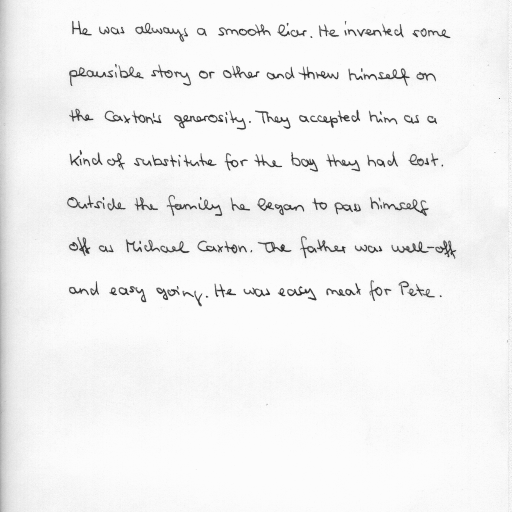 He was always a smooth liar. He invented some
plausible story or other and threw himself on
the Caxton's generosity. They accepted him as a
kind of substitute for the boy they had lost.
Outside the family he began to pass himself
off as Michael Caxton. The father was well-off
and easy going. He was easy meat for Pete.